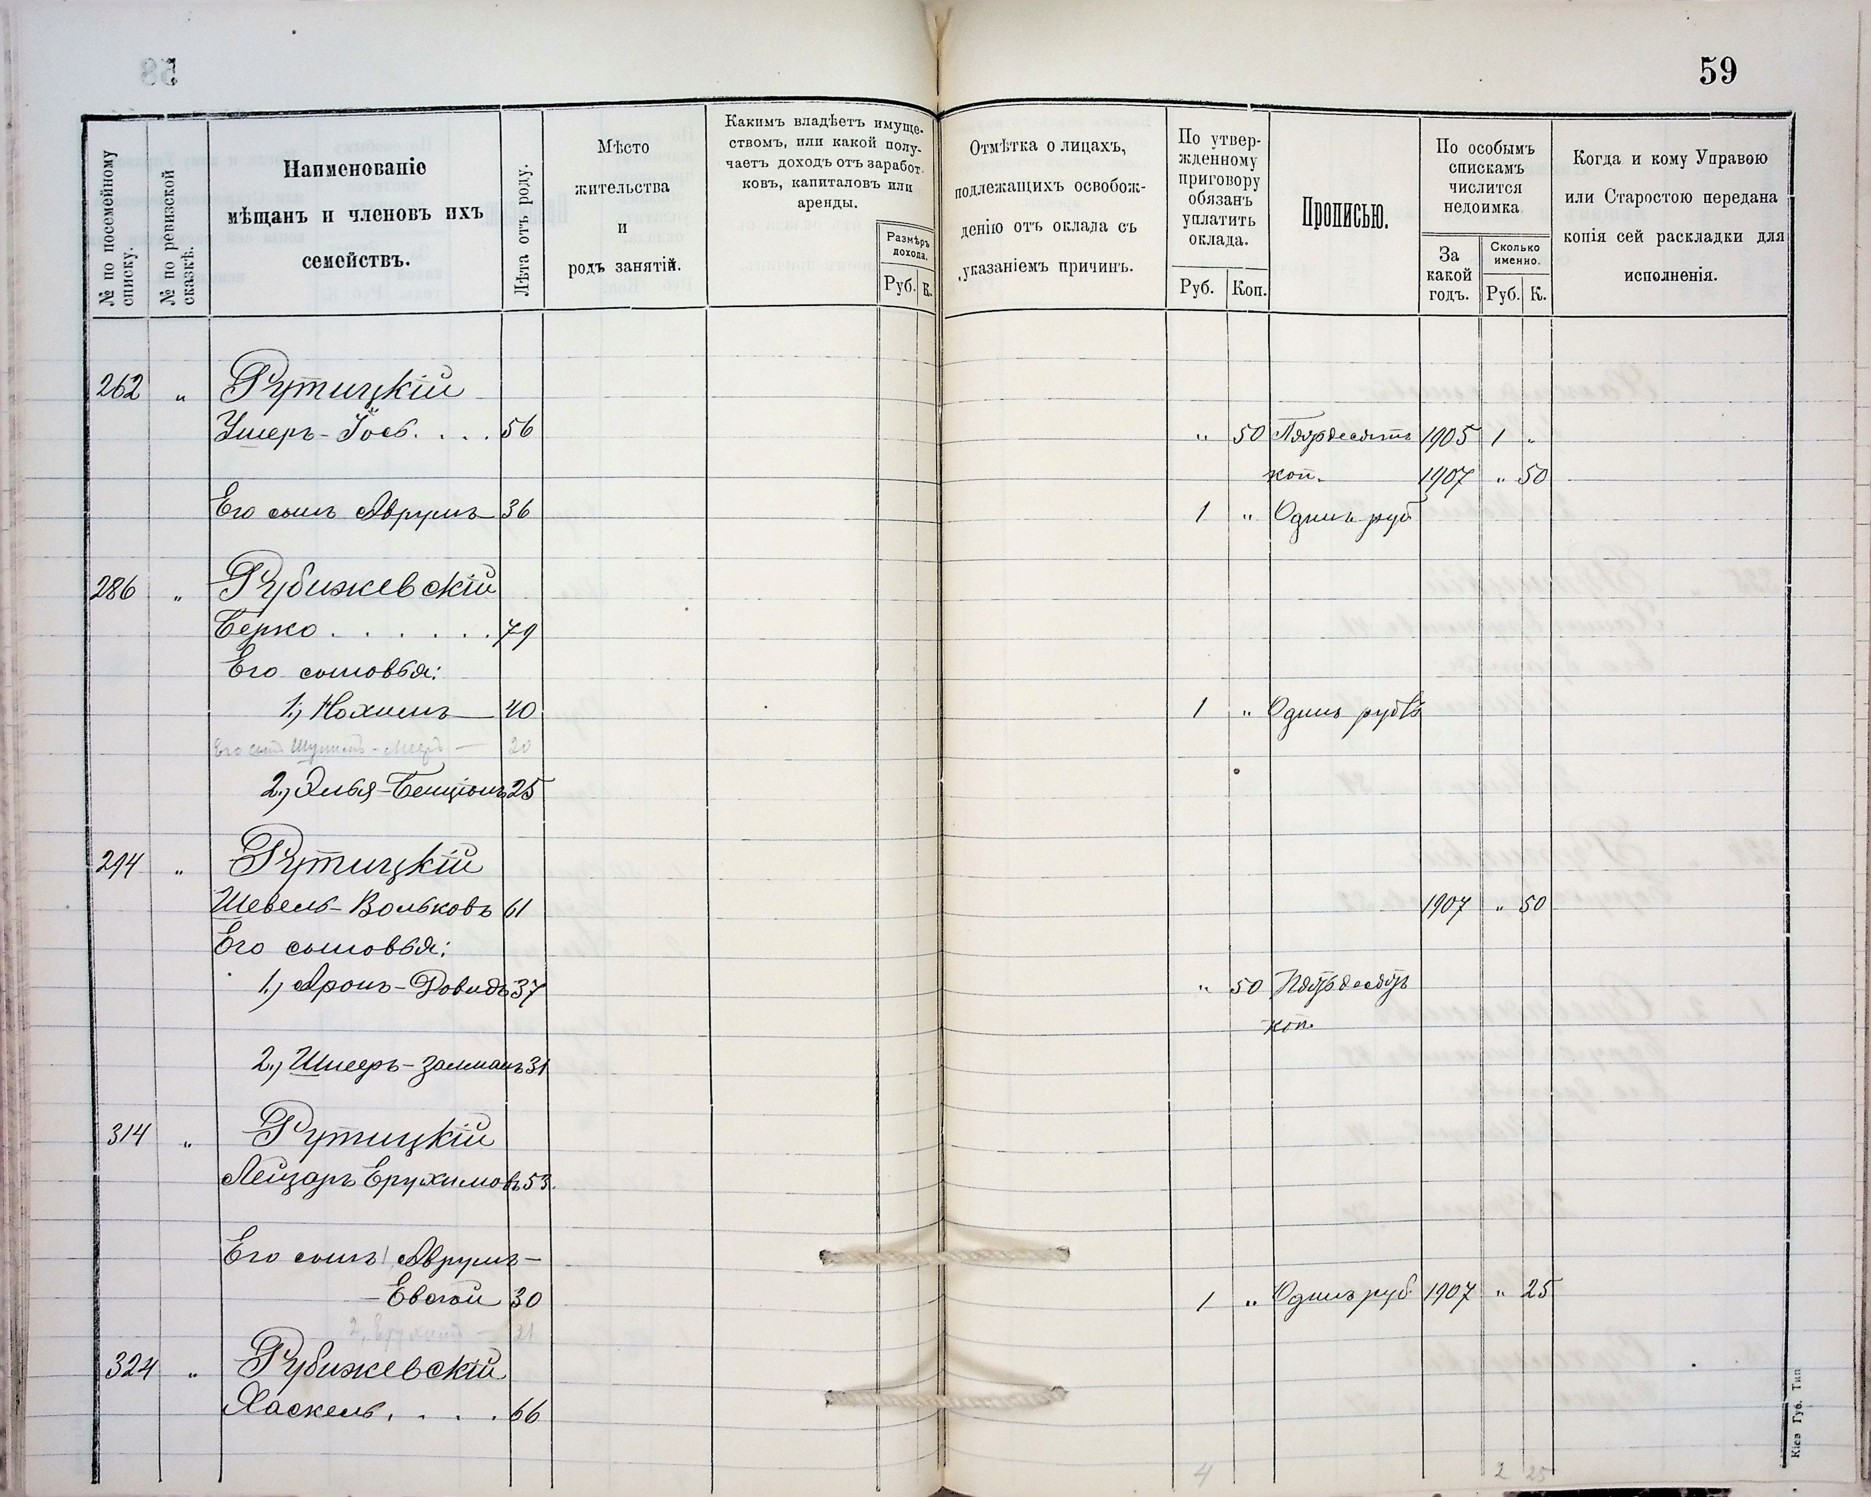 59
№ по посемейному списку.
№ по ревизской сказкѣ.
Наименованіе
мѣщанъ и членовъ ихъ
семействъ.
Лѣта отъ роду.
Мѣсто
жительства
и
родъ занятій.
Какимъ владѣетъ имуще-
ствомъ, или какой полу-
чаетъ доходъ отъ заработ-
ковъ, капиталовъ или
аренды.
Размѣръ
дохода.
Руб. К.
Отмѣтка о лицахъ,
подлежащихъ освобож-
денію отъ оклада съ
указаніемъ причинъ.
По утвер-
жденному
приговору
обязанъ
уплатить
оклада.
Руб. Коп.
Прописью.
По особымъ
спискамъ
числится
недоимка
За
какой
годъ.
Сколько
именно.
Руб. К.
Когда и кому Управою
или Старостою передана
копія сей раскладки для
исполненія.
262 " Рутицкій
Умеръ-Іось . . . . 56 " 50 Пятьдесятъ 1905 1 "
коп. 1907 " 50
Его сынъ Аврумъ 36 1 " Одинъ руб
286 " Рубижевскій
Берко . . . . . . . 79
Его сыновья:
1.) Нохимъ 40 1 " Одинъ рубль
Его сынъ 20
2.) Элья-Бенціонъ 25
294 " Рутицкій
Шевель-Вольковъ 61 1907 " 50
Его сыновья:
1.) Аронъ-Довидъ 37 " 50 Пятьдесятъ
коп.
2.) Шмеръ-Залманъ 31
314 " Рутицкій
Лейзаръ Ерухимовъ 53.
Его сынъ Аврумъ-
-Евсей 30 1 " Одинъ руб. 1907 " 25
2, Ерухимъ — 21
324 " Рубижевскій
Хаскель . . . . 66
4 2 25
Кіев Губ. Тип